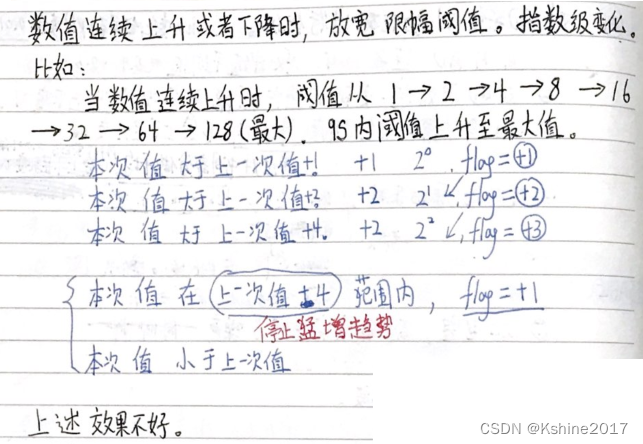 数值连续上升或者下降时,放宽 限幅阈值。指数级变化。
比如:
当数值连续上升时,阈值从 1 → 2 → 4 → 8 → 16
→ 32 → 64 → 128(最大)。9S内阈值上升至最大值。
本次 值 大于 上一次值+1 +1 2⁰ , flag = +1
本次 值 大于 上一次值+2 +2 2¹ ↙, flag = +2
本次 值 大于 上一次值+4。 +2 2² ↙, flag = +3
本次 值 在 上一次值 ±4 范围内, flag = +1
停止猛增趋势
本次 值 小于上一次值
上述 效果不好。
CSDN @Kshine2017